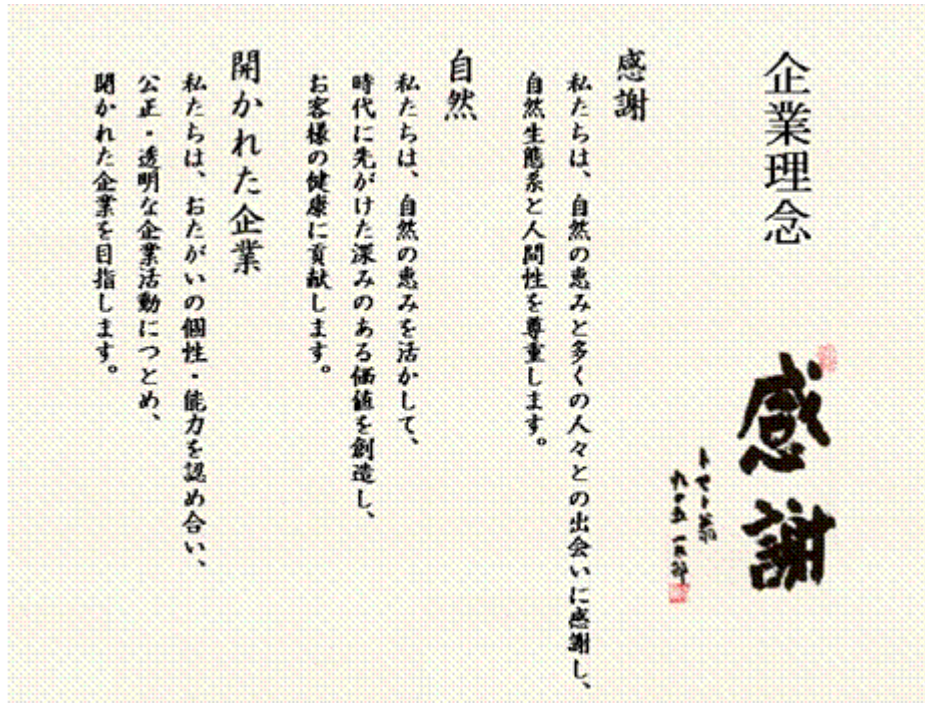 企業理念
感謝
感謝
私たちは、自然の恵みと多くの人々との出会いに感謝し、
自然生態系と人間性を尊重します。
自然
私たちは、自然の恵みを活かして、
時代に先がけた深みのある価値を創造し、
お客様の健康に貢献します。
開かれた企業
私たちは、おたがいの個性・能力を認め合い、
公正・透明な企業活動につとめ、
開かれた企業を目指します。